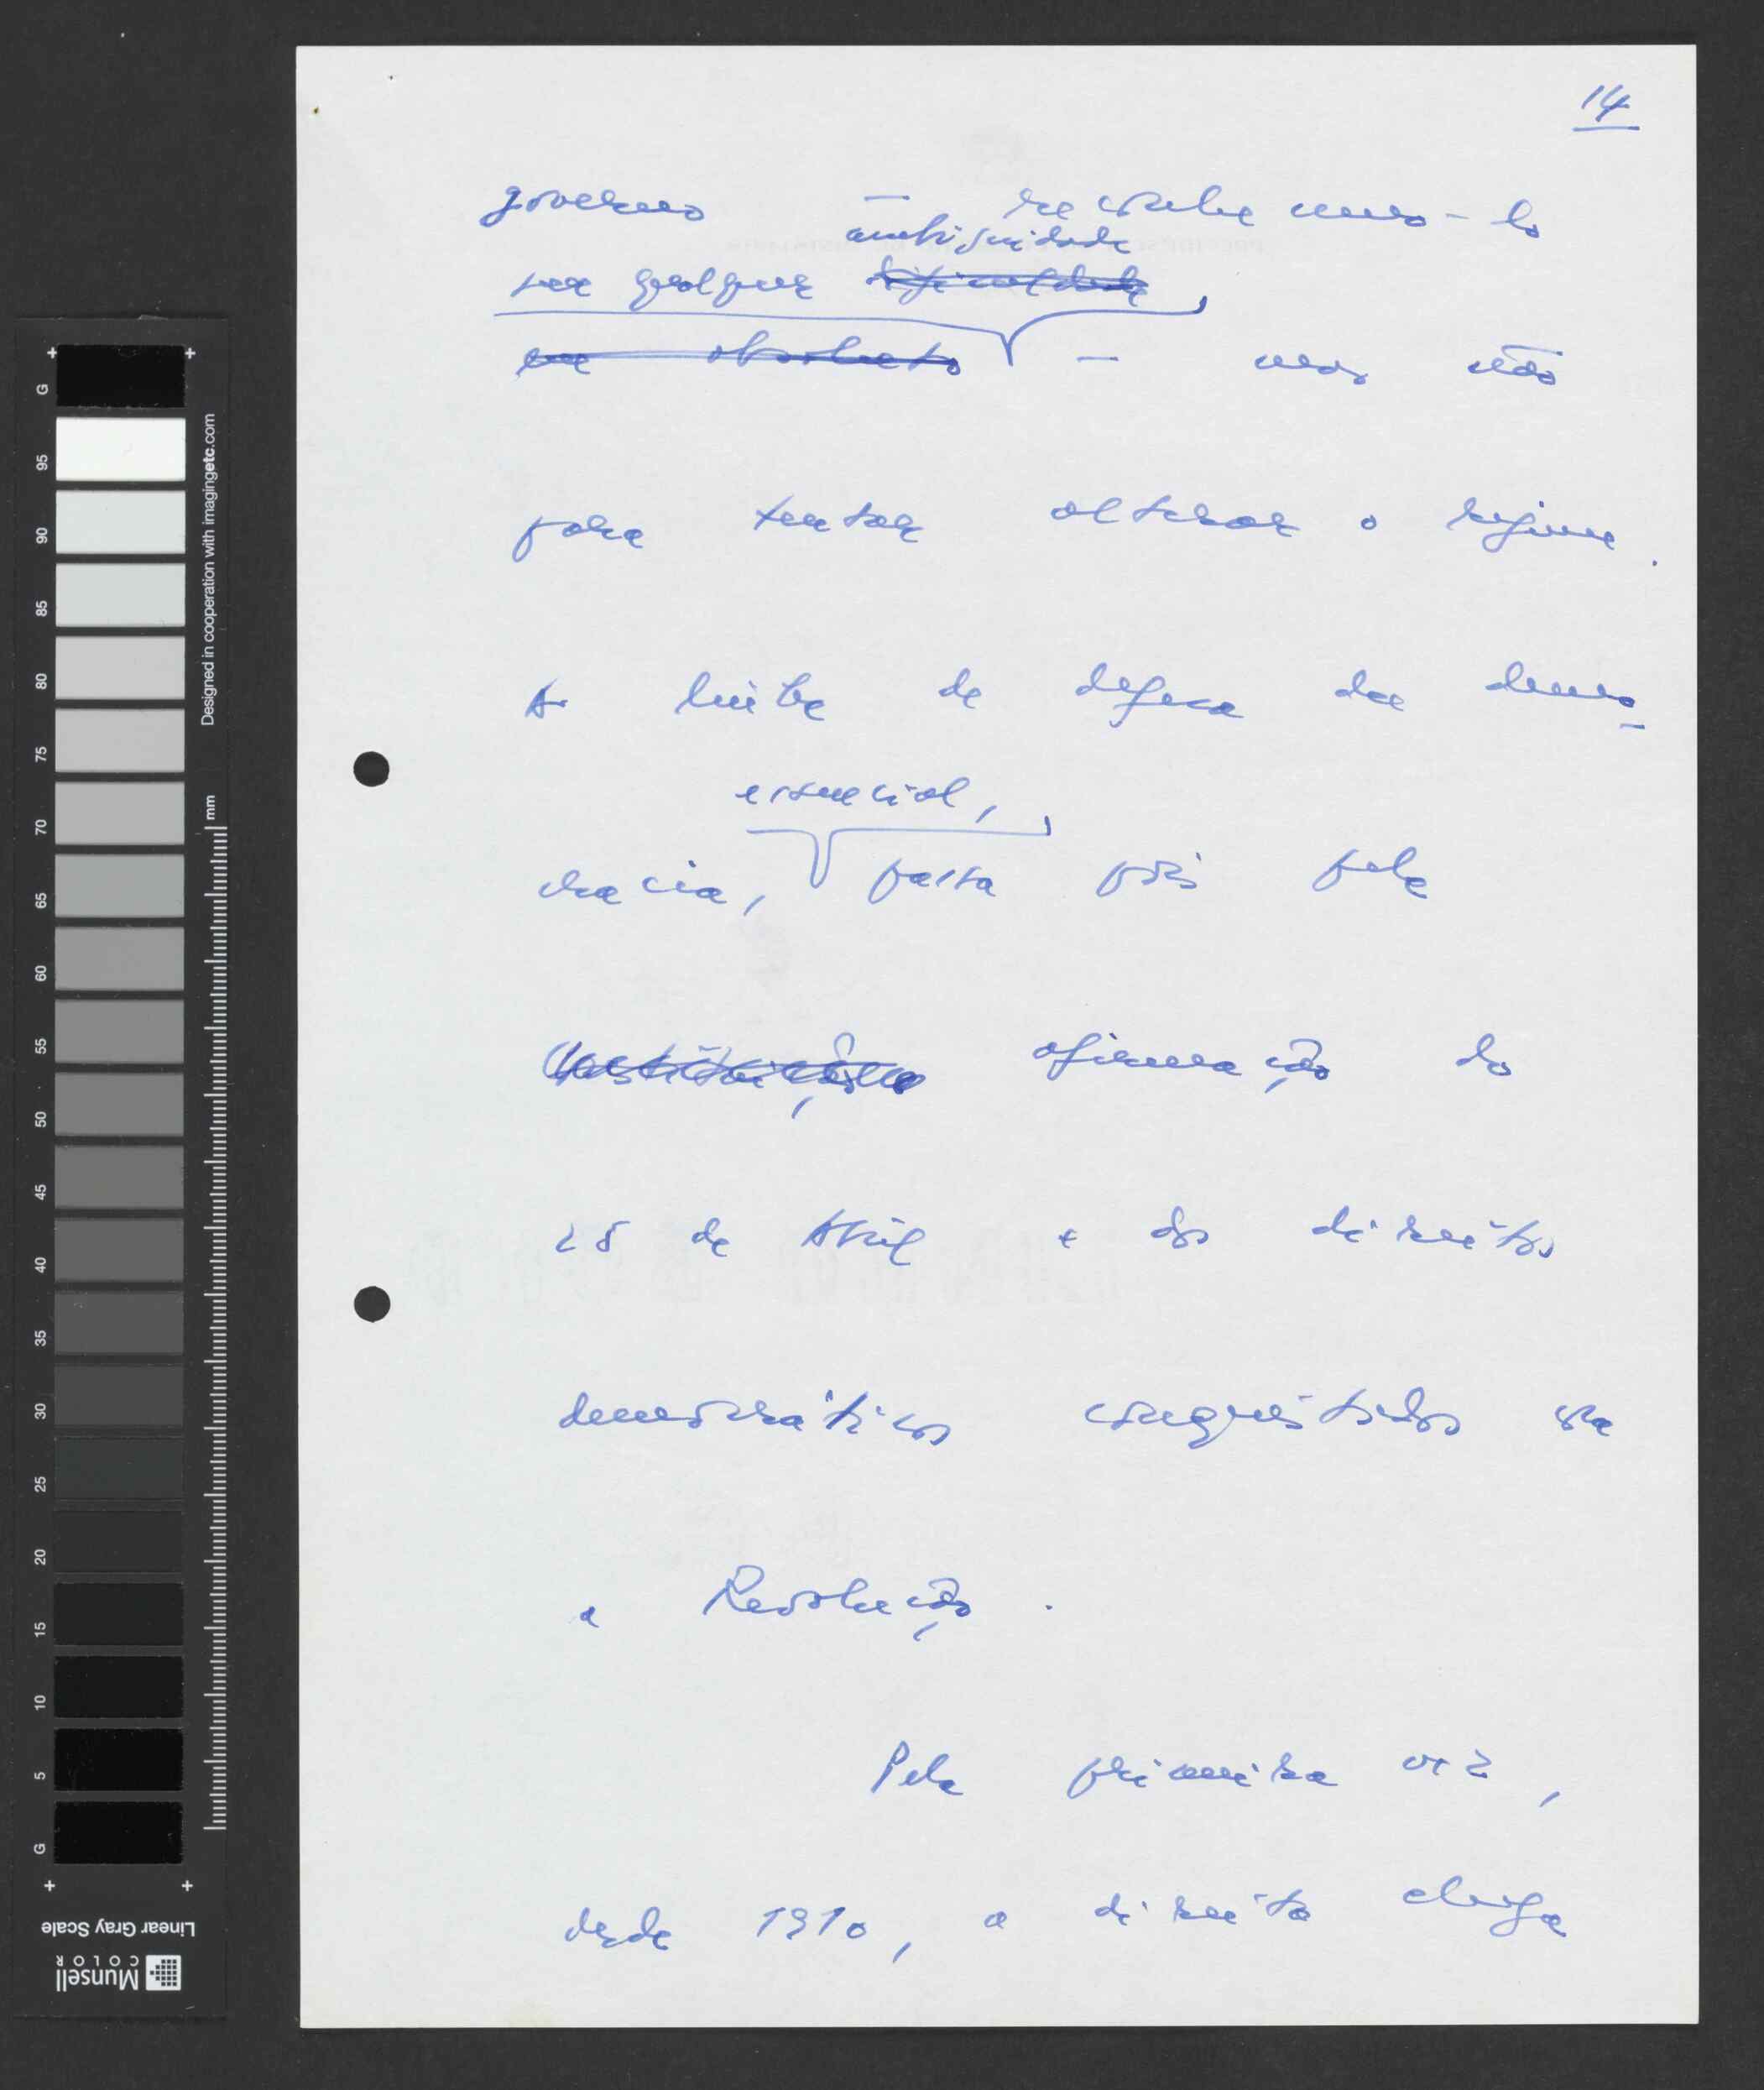 14
governo — reconhecemo-lo
ambiguidade
sem qualquer dificuldade,
em absoluto — mas não
para tentar alterar o regime.
A linha de defesa da demo-
essencial,
cracia, passa pois pela
Constituição afirmação do
25 de Abril e dos direitos
democráticos conquistados com
a Revolução.
Pela primeira vez,
desde 1910, a direita chega
G 95 90 85 80 75 70 65 60 55 50 45 40 35 30 25 20 15 10 5 G
Designed in cooperation with imagingetc.com
mm
Linear Gray Scale
Munsell
COLOR